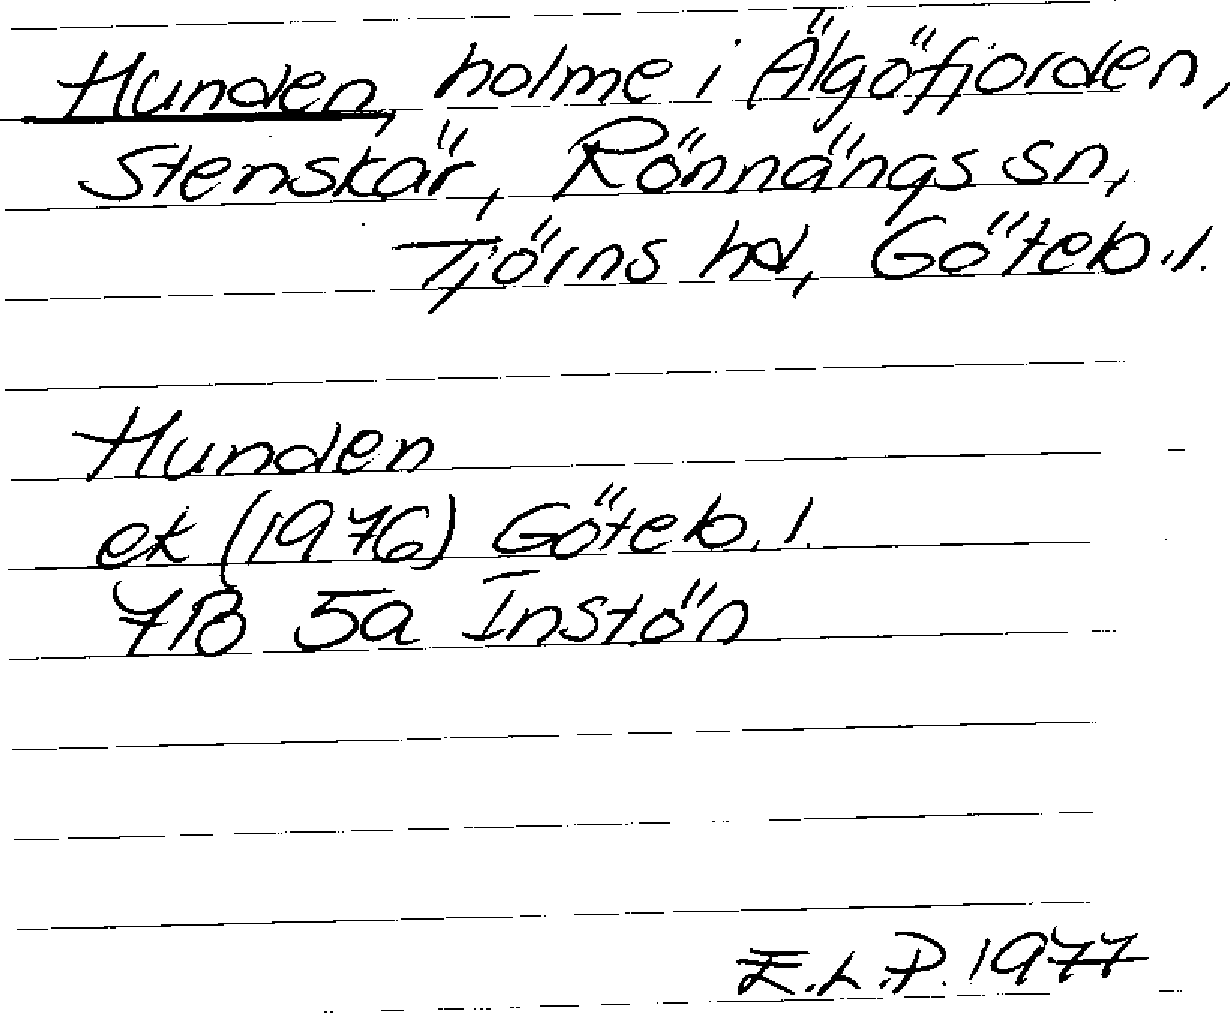 Hunden, holme i Älgöfjorden,
Stenskär, Rönnängs sn,
Tjörns hd, Göteb.l.
Hunden
ek (1976) Göteb.l.
7B 5a Instön
E.L.P. 1977